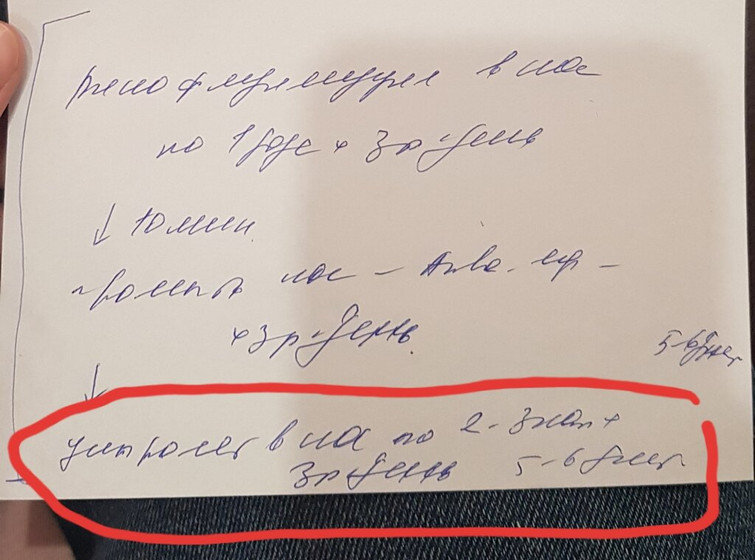 Ринофлуимуцил в нос
по 1 дозе х 3 р. день
↓ 10 мин.
промыть нос - Аква
х 3 р. день
5-6 дней
↓
в нос по 2-3 кап х
3 р день 5-6 дней